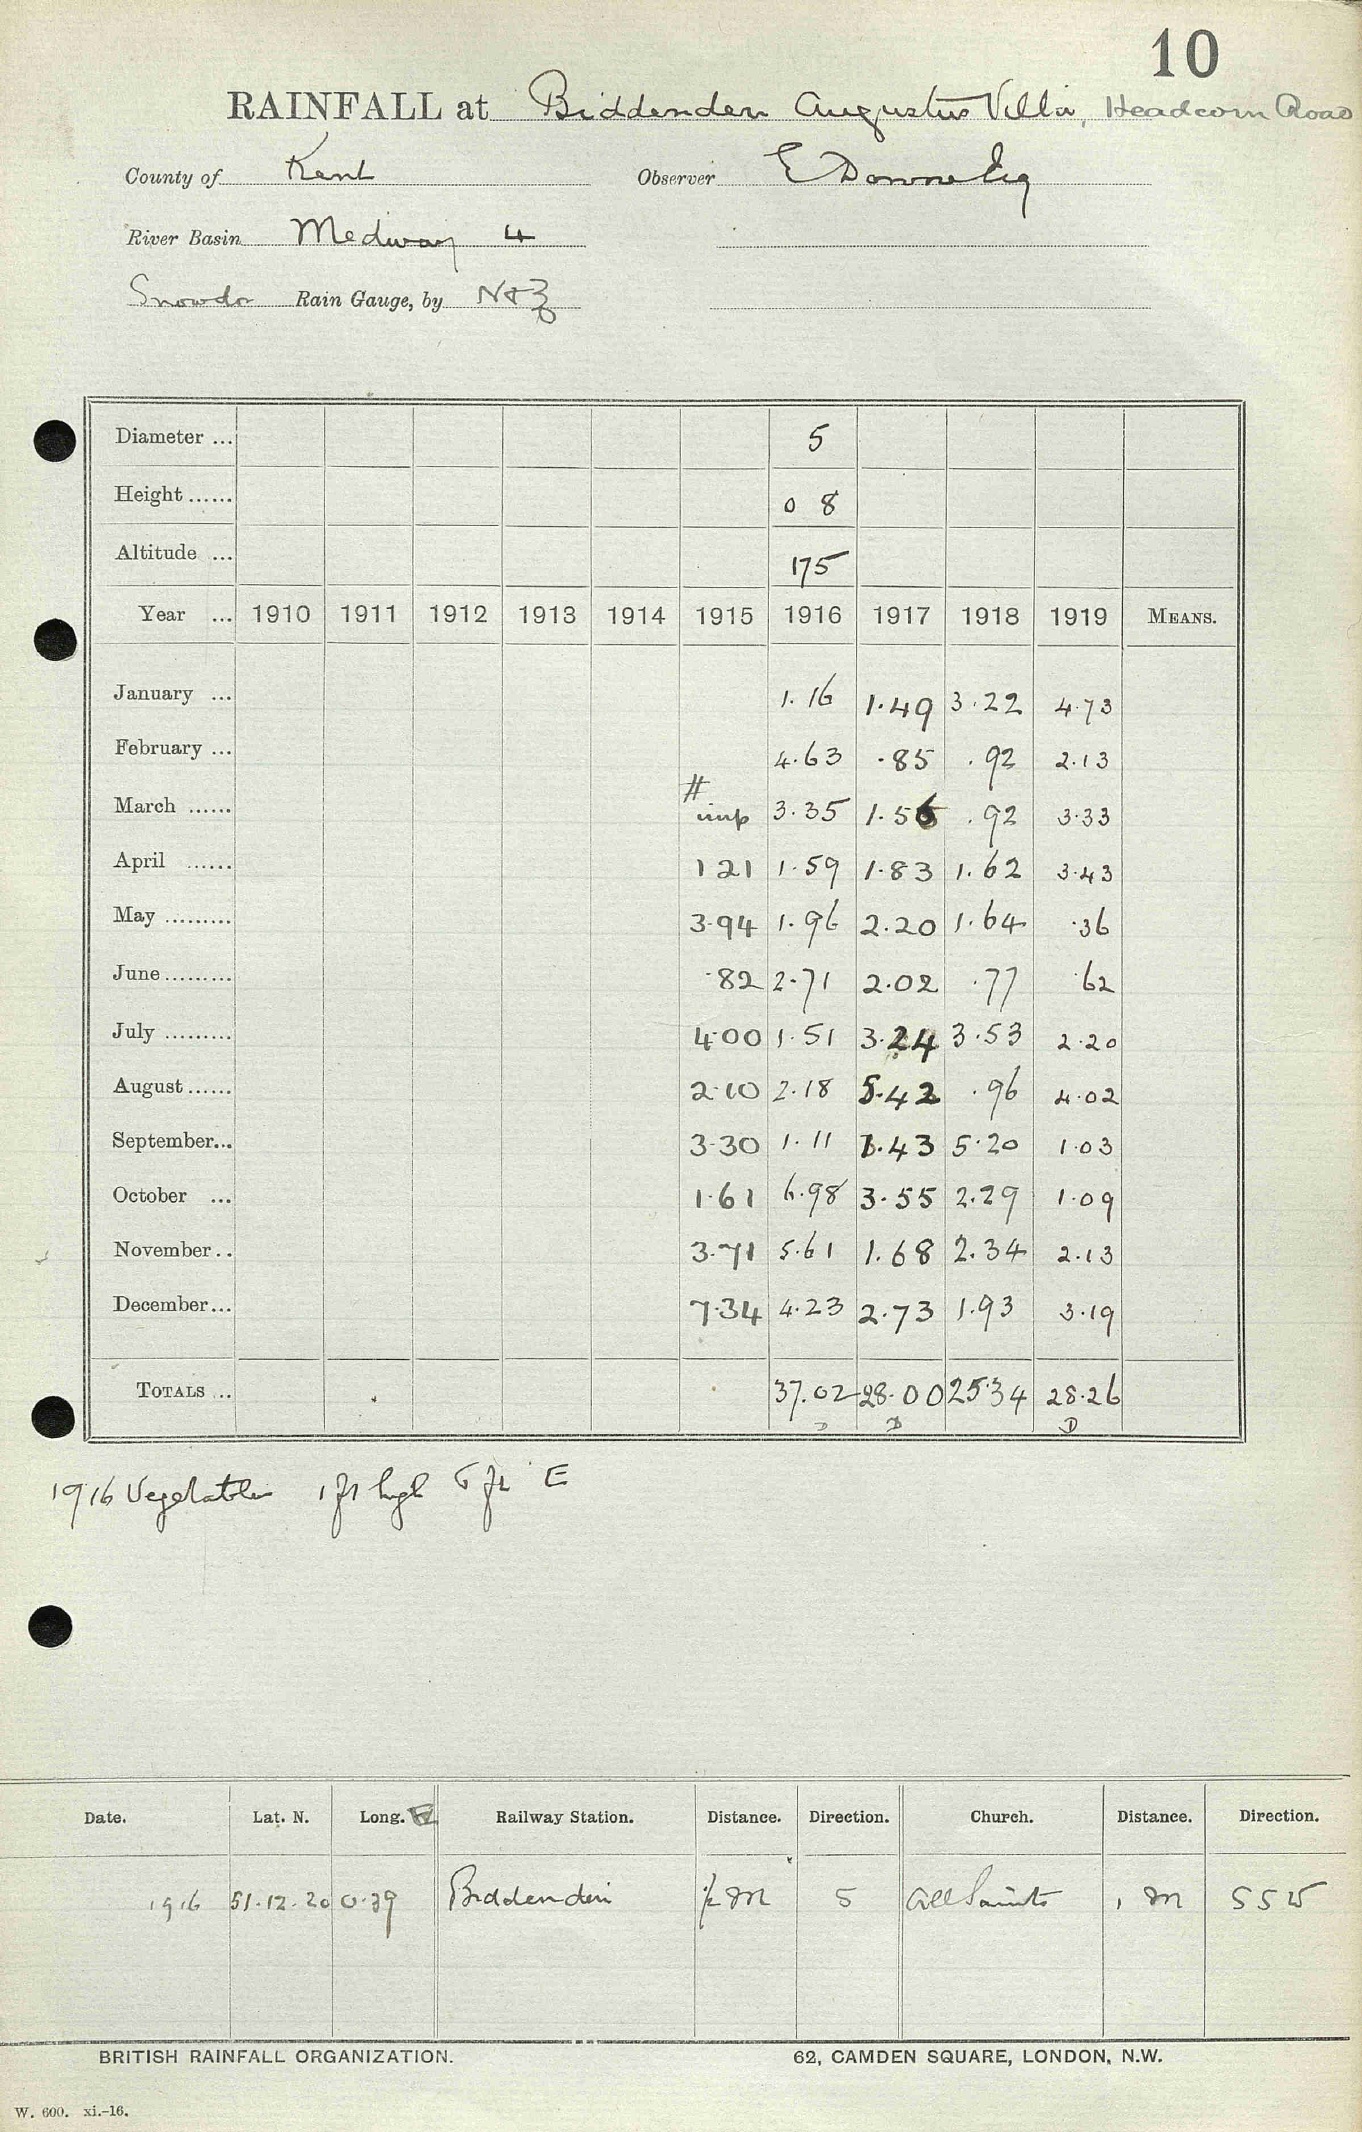 10
RAINFALL at Biddenden Augustus Villa, Headcorn Road
County of Kent Observer E Downe Esq
River Basin Medway 4
Snowdo Rain Gauge, by N & Z
Diameter ... 5
Height ...... 0 8
Altitude ... 175
Year ... 1910 1911 1912 1913 1914 1915 1916 1917 1918 1919 MEANS.
January ... 1.16 1.49 3.22 4.73
February ... 4.63 .85 .92 2.13
March ...... # imp 3.35 1.56 .92 3.33
April ...... 1 21 1.59 1.83 1.62 3.43
May ......... 3.94 1.96 2.20 1.64 .36
June ......... .82 2.71 2.02 .77 .62
July ......... 4.00 1.51 3.24 3.53 2.20
August ...... 2.10 2.18 5.42 .96 4.02
September... 3.30 1.11 1.43 5.20 1.03
October ... 1.61 6.98 3.55 2.29 1.09
November .. 3.71 5.61 1.68 2.34 2.13
December... 7.34 4.23 2.73 1.93 3.19
TOTALS ... 37.02 28.00 25.34 28.26
D D D
1916 Vegetables 1 ft high 6 ft E
Date. Lat. N. Long. E Railway Station. Distance. Direction. Church. Distance. Direction.
1916 51.12.20 0.39 Biddenden ½ M S All Saints 1 M SSW
BRITISH RAINFALL ORGANIZATION. 62, CAMDEN SQUARE, LONDON, N.W.
W. 600. xi.-16.